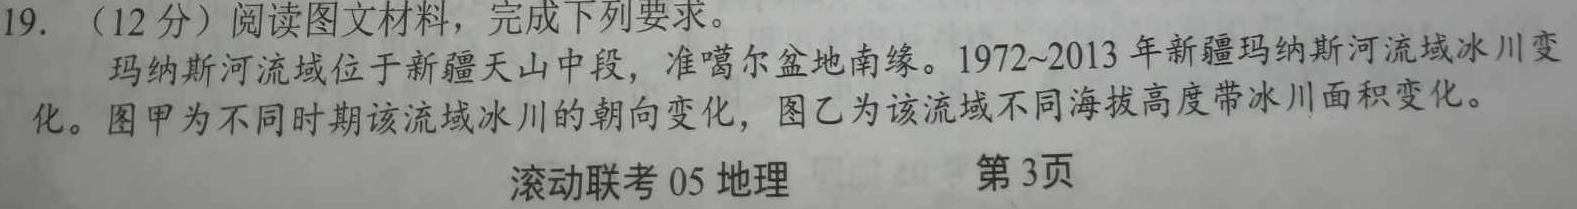 19. （12 分）阅读图文材料，完成下列要求。
玛纳斯河流域位于新疆天山中段，准噶尔盆地南缘。1972~2013 年新疆玛纳斯河流域冰川变
化。图甲为不同时期该流域冰川的朝向变化，图乙为该流域不同海拔高度带冰川面积变化。
滚动联考 05 地理 第 3页